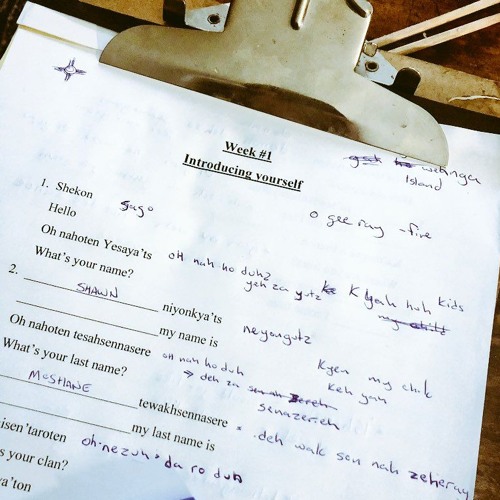 Week #1
Introducing yourself
Island
1. Shekon
Hello
Sago
o gee ray - fire
Oh nahoten Yesaya'ts
oh nah ho duhz
What's your name?
yeh za yutz
K yah huh kids
2. SHAWN niyonkya'ts
my name is
neyongutz
Oh nahoten tesahsennasere
oh nah ho duh
Kyen my chik
What's your last name?
→ deh za
sennazereh
Keh yah
McSHANE tewakhsennasere
deh wak son nah zeheray
my last name is
isen'taroten
oh-nezuh da ro duh
s your clan?
ya'ton